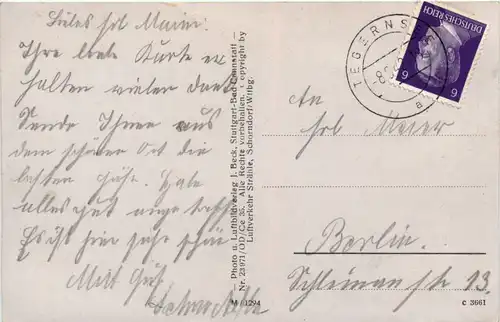 Liebes Frl. Maier.
Ihre liebe Karte er
halten vielen Dank
Sende Ihnen aus
dem schönen Ort die
besten Grüße. Habe
alles gut angetroffen
Es ist hier sehr schön
Mit Gruß
— Photo u. Luftbildverlag J. Beck, Stuttgart-Bad Cannstatt —
Nr. 23971/OD/Ce 35. Alle Rechte vorbehalten. Copyright by
Luftverkehr Strähle, Schorndorf/Wttbg.
M 1294
TEGERNS
8.
a
DEUTSCHES REICH
6 6
An
Frl. Meier
Berlin.
Schleiman str 13.
c 3661